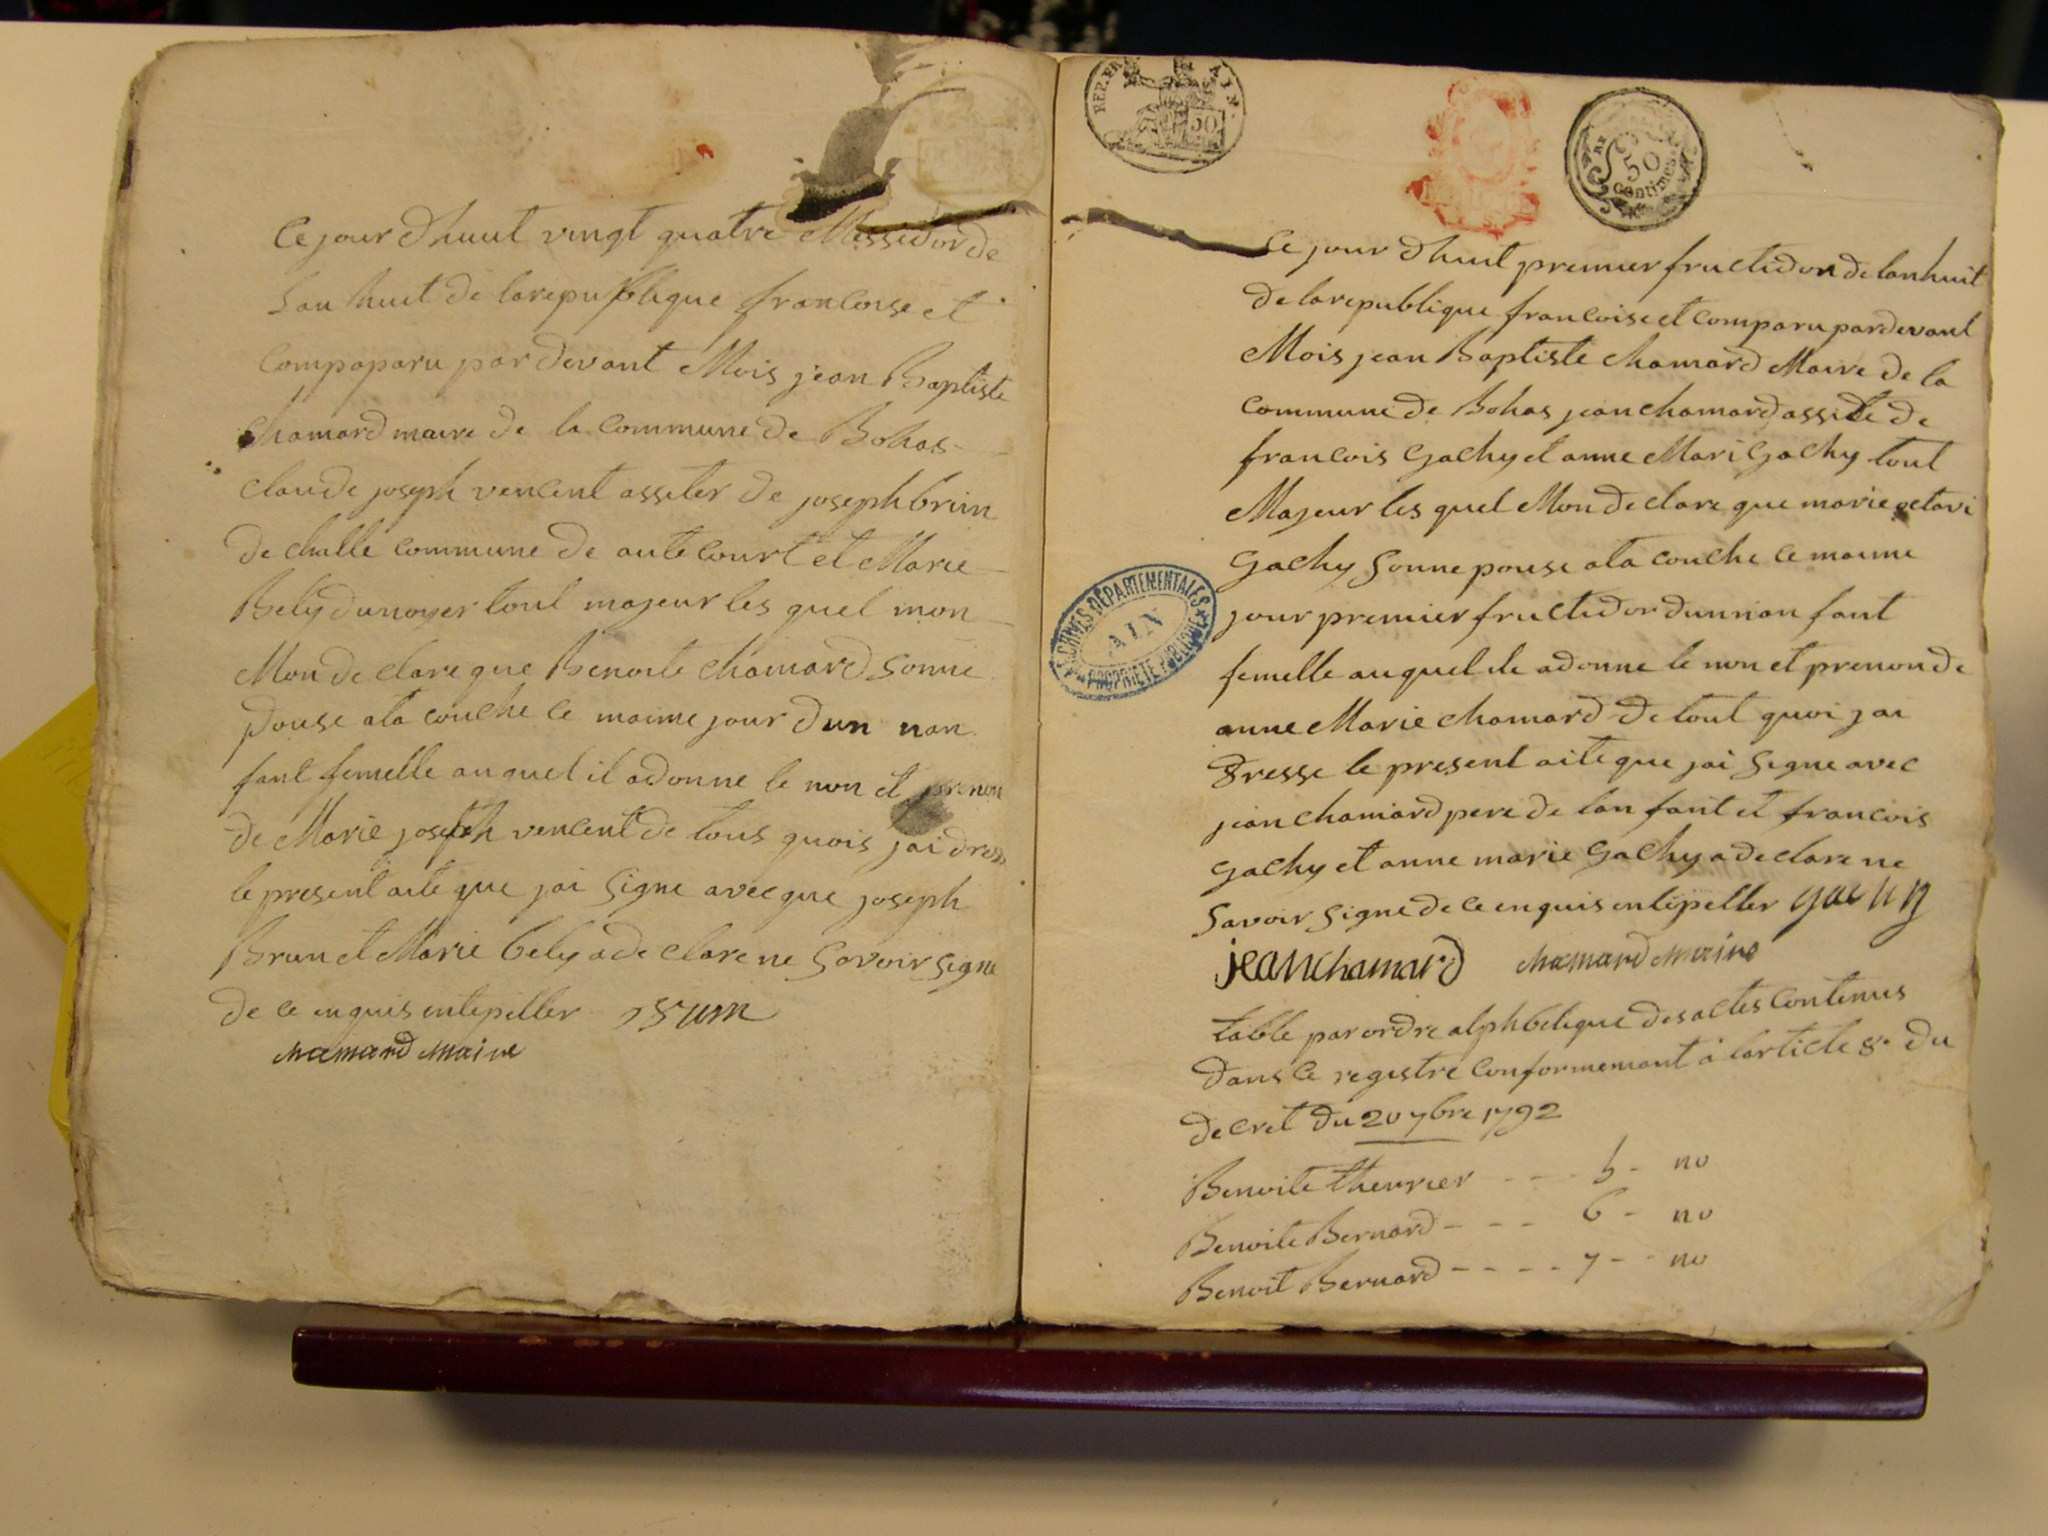 Ce jour dhuut vingt quatre Messidor de
Lan huit de larepublique francoise et
compaparu par devant Mois jean Baptiste
chamard maire de la commune de Bohas
claude joseph vencent assiter de joseph brun
de challe commune de autecourt et Marie
Bely dunoyer tout majeur les quel mon
Mon declare que Benoite chamard sonne
pouse ata couche ce maime jour dun nan
fant femelle auquel il adonne le non et prenon
de Marie joseph vencent de tous quois jai dresse
le present aite que jai signe avecque joseph
Brun et Marie bely adeclare ne savoir signe
de ce enquis entepiller brum
chamard maire
REP. FRA
AIN.
50
50
Centimes
Ce jour dhuit premier fructidor de lan huit
de larepublique francoise et comparu pardevant
Mois jean Baptiste chamard Maire de la
commune de Bohas jean chamard assite de
francois Gachy et anne Mari Gachy tout
Majeur les quel Mon declare que marie octavi
Gachy sonne pouse ata couche ce maime
jour premier fructidor dunnan fant
femelle auquel ile adonne le non et prenon de
anne Marie chamard de tout quoi jai
dresse le present aite que jai signe avec
jean chamard pere de lan fant et francois
Gachy et anne marie Gachy adeclare ne
savoir signe de ce enquis entepeller gachy
jean chamard chamard maire
ARCHIVES DÉPARTEMENTALES
AIN
PROPRIÉTÉ PUBLIQUE
table par ordre alphbetique des actes contenus
dans ce registre conformemant à larticle 8e du
decret du 20 7bre 1792
Benoite thevrier - - - 5 - no
Benoite Bernard - - - 6 - no
Benoit Bernard - - - - 7 - - no